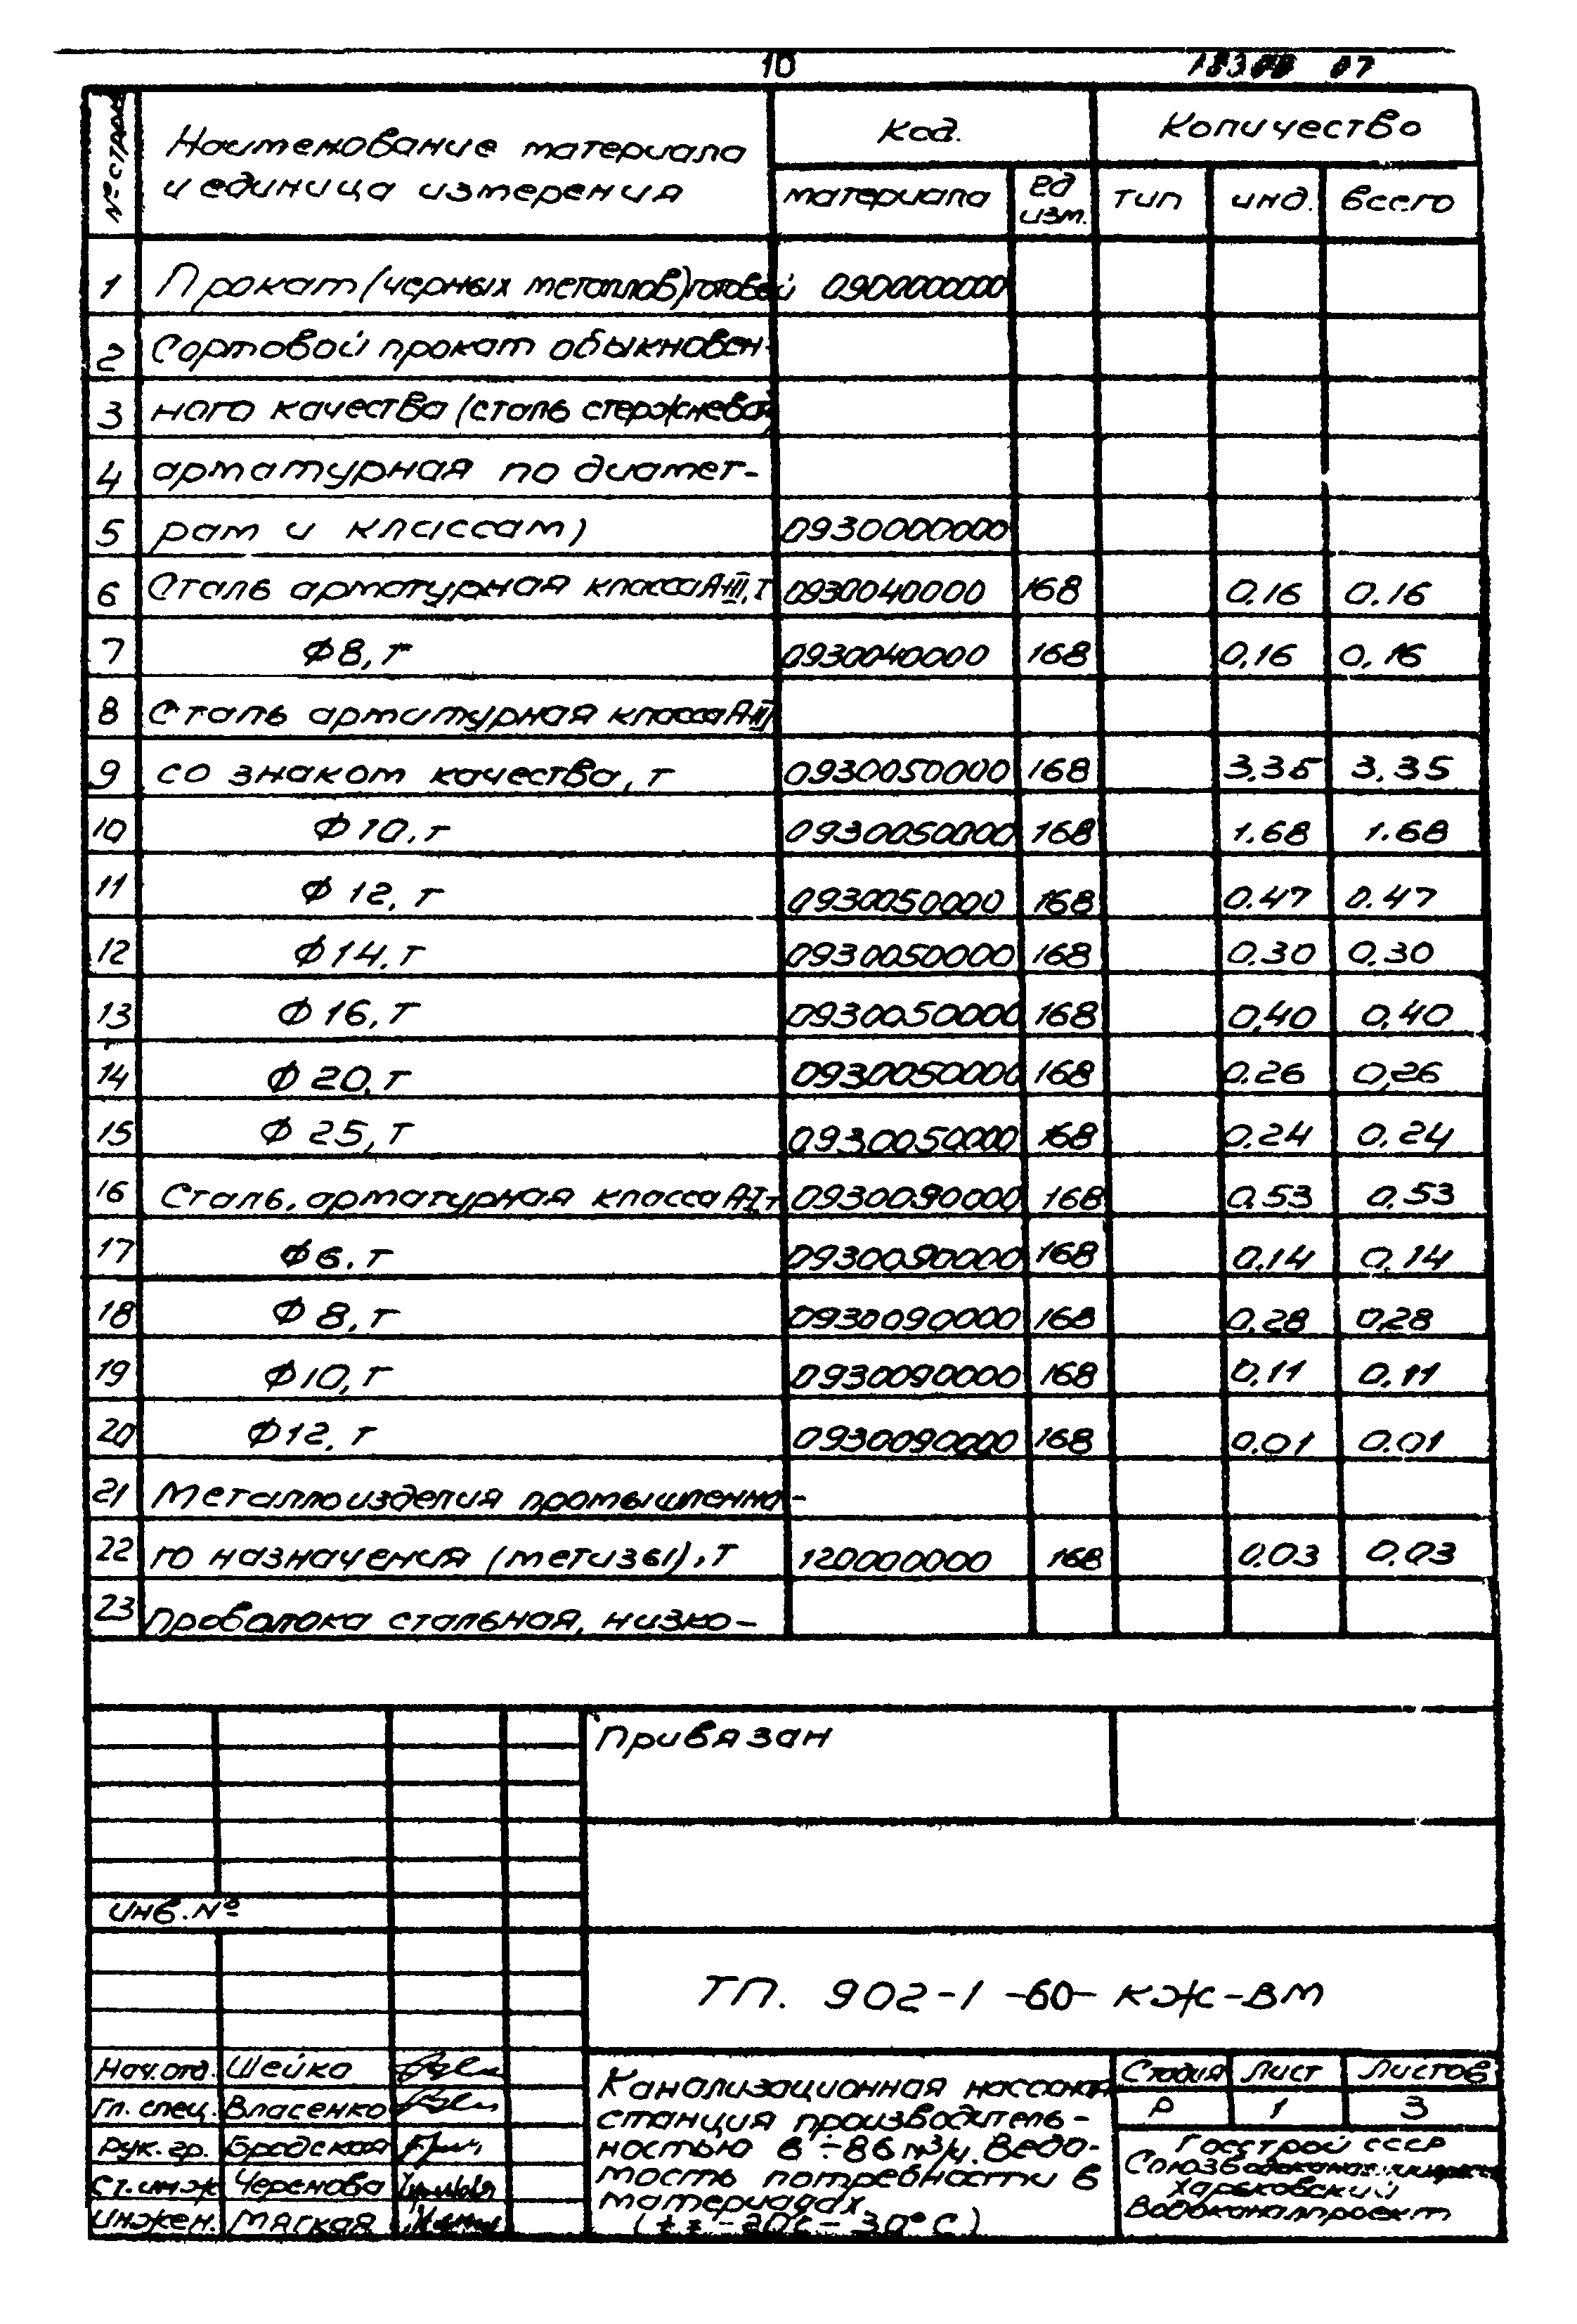 10
07
№ строк
Наименование материала
и единица измерения
Код.
Количество
материала
ед
изм.
тип
инд.
всего
1 Прокат (черных металлов) готовый 0900000000
2 Сортовой прокат обыкновен-
3 ного качества (сталь стержневая
4 арматурная по диамет-
5 рам и классам) 0930000000
6 Сталь арматурная класса А-III, т 0930040000 168 0.16 0.16
7 Ф8, т 0930040000 168 0,16 0,16
8 Сталь арматурная класса А-III
9 со знаком качества, т 0930050000 168 3.35 3.35
10 Ф10, т 0930050000 168 1.68 1.68
11 Ф 12, т 0930050000 168 0.47 0.47
12 Ф14, т 0930050000 168 0.30 0.30
13 Ф16, т 0930050000 168 0,40 0,40
14 Ф 20, т 0930050000 168 0.26 0,26
15 Ф 25, т 0930050000 168 0.24 0.24
16 Сталь, арматурная класса А-I т 0930090000 168 0.53 0.53
17 Ф6. т 0930090000 168 0.14 0.14
18 Ф 8, т 0930090000 168 0.28 0,28
19 Ф10, т 0930090000 168 0,11 0,11
20 Ф12, т 0930090000 168 0.01 0.01
21 Металлоизделия промышленно-
22 го назначения (метизы), т 120000000 168 0.03 0.03
23 Проволока стальная, низко-
Привязан
инв. №
ТП. 902-1-60-КЖ-ВМ
Нач.отд. Шейко
Гл. спец. Власенко
Рук. гр. Бродская
Ст.инж Черенова
инжен. Мягкая
Канализационная насосная
станция производитель-
ностью 8÷86 м³/ч. Ведо-
мость потребности в
материалах.
(t = -20С - 30°С)
Стадия Лист Листов
Р 1 3
Госстрой СССР
Харьковский
Водоканалпроект